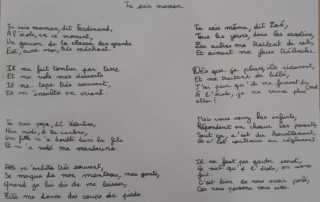 Tu sais maman
Tu sais maman, dit Ferdinand,
A l'école, en ce moment,
Un garçon de la classe des grands
Est, avec moi, très méchant.
Il me fait tomber par terre
Et me vole mes desserts
Il me tape très souvent,
Et m'insulte en criant.
Tu sais papa, dit Valentine,
Hier midi, à la cantine,
Une fille m'a doublé dans la file
Et m'a volé ma
Elle m'embête très souvent,
Se moque de mon manteau, mes gants,
Quand je lui dis de me laisser,
Elle me donne des coups de pieds.
Tu sais mémé, dit Zoé,
Tous les jours, dans les escaliers,
Les autres me traitent de
Et aiment me faire
Dès que je pleure, ils
Et me traitent de bébé,
J'ai peur qu'ils me fassent du
A l'école, je ne veux plus
aller !
Mais vous savez les enfants,
Répondent en chœur les parents,
Tout ça s'est du harcèlement,
Et c'est contraire au règlement.
Il ne faut pas garder secret,
Le mal qu'à l'école, on vous
fait
C'est bien de nous avoir parlé,
Car nous pouvons vous aider.